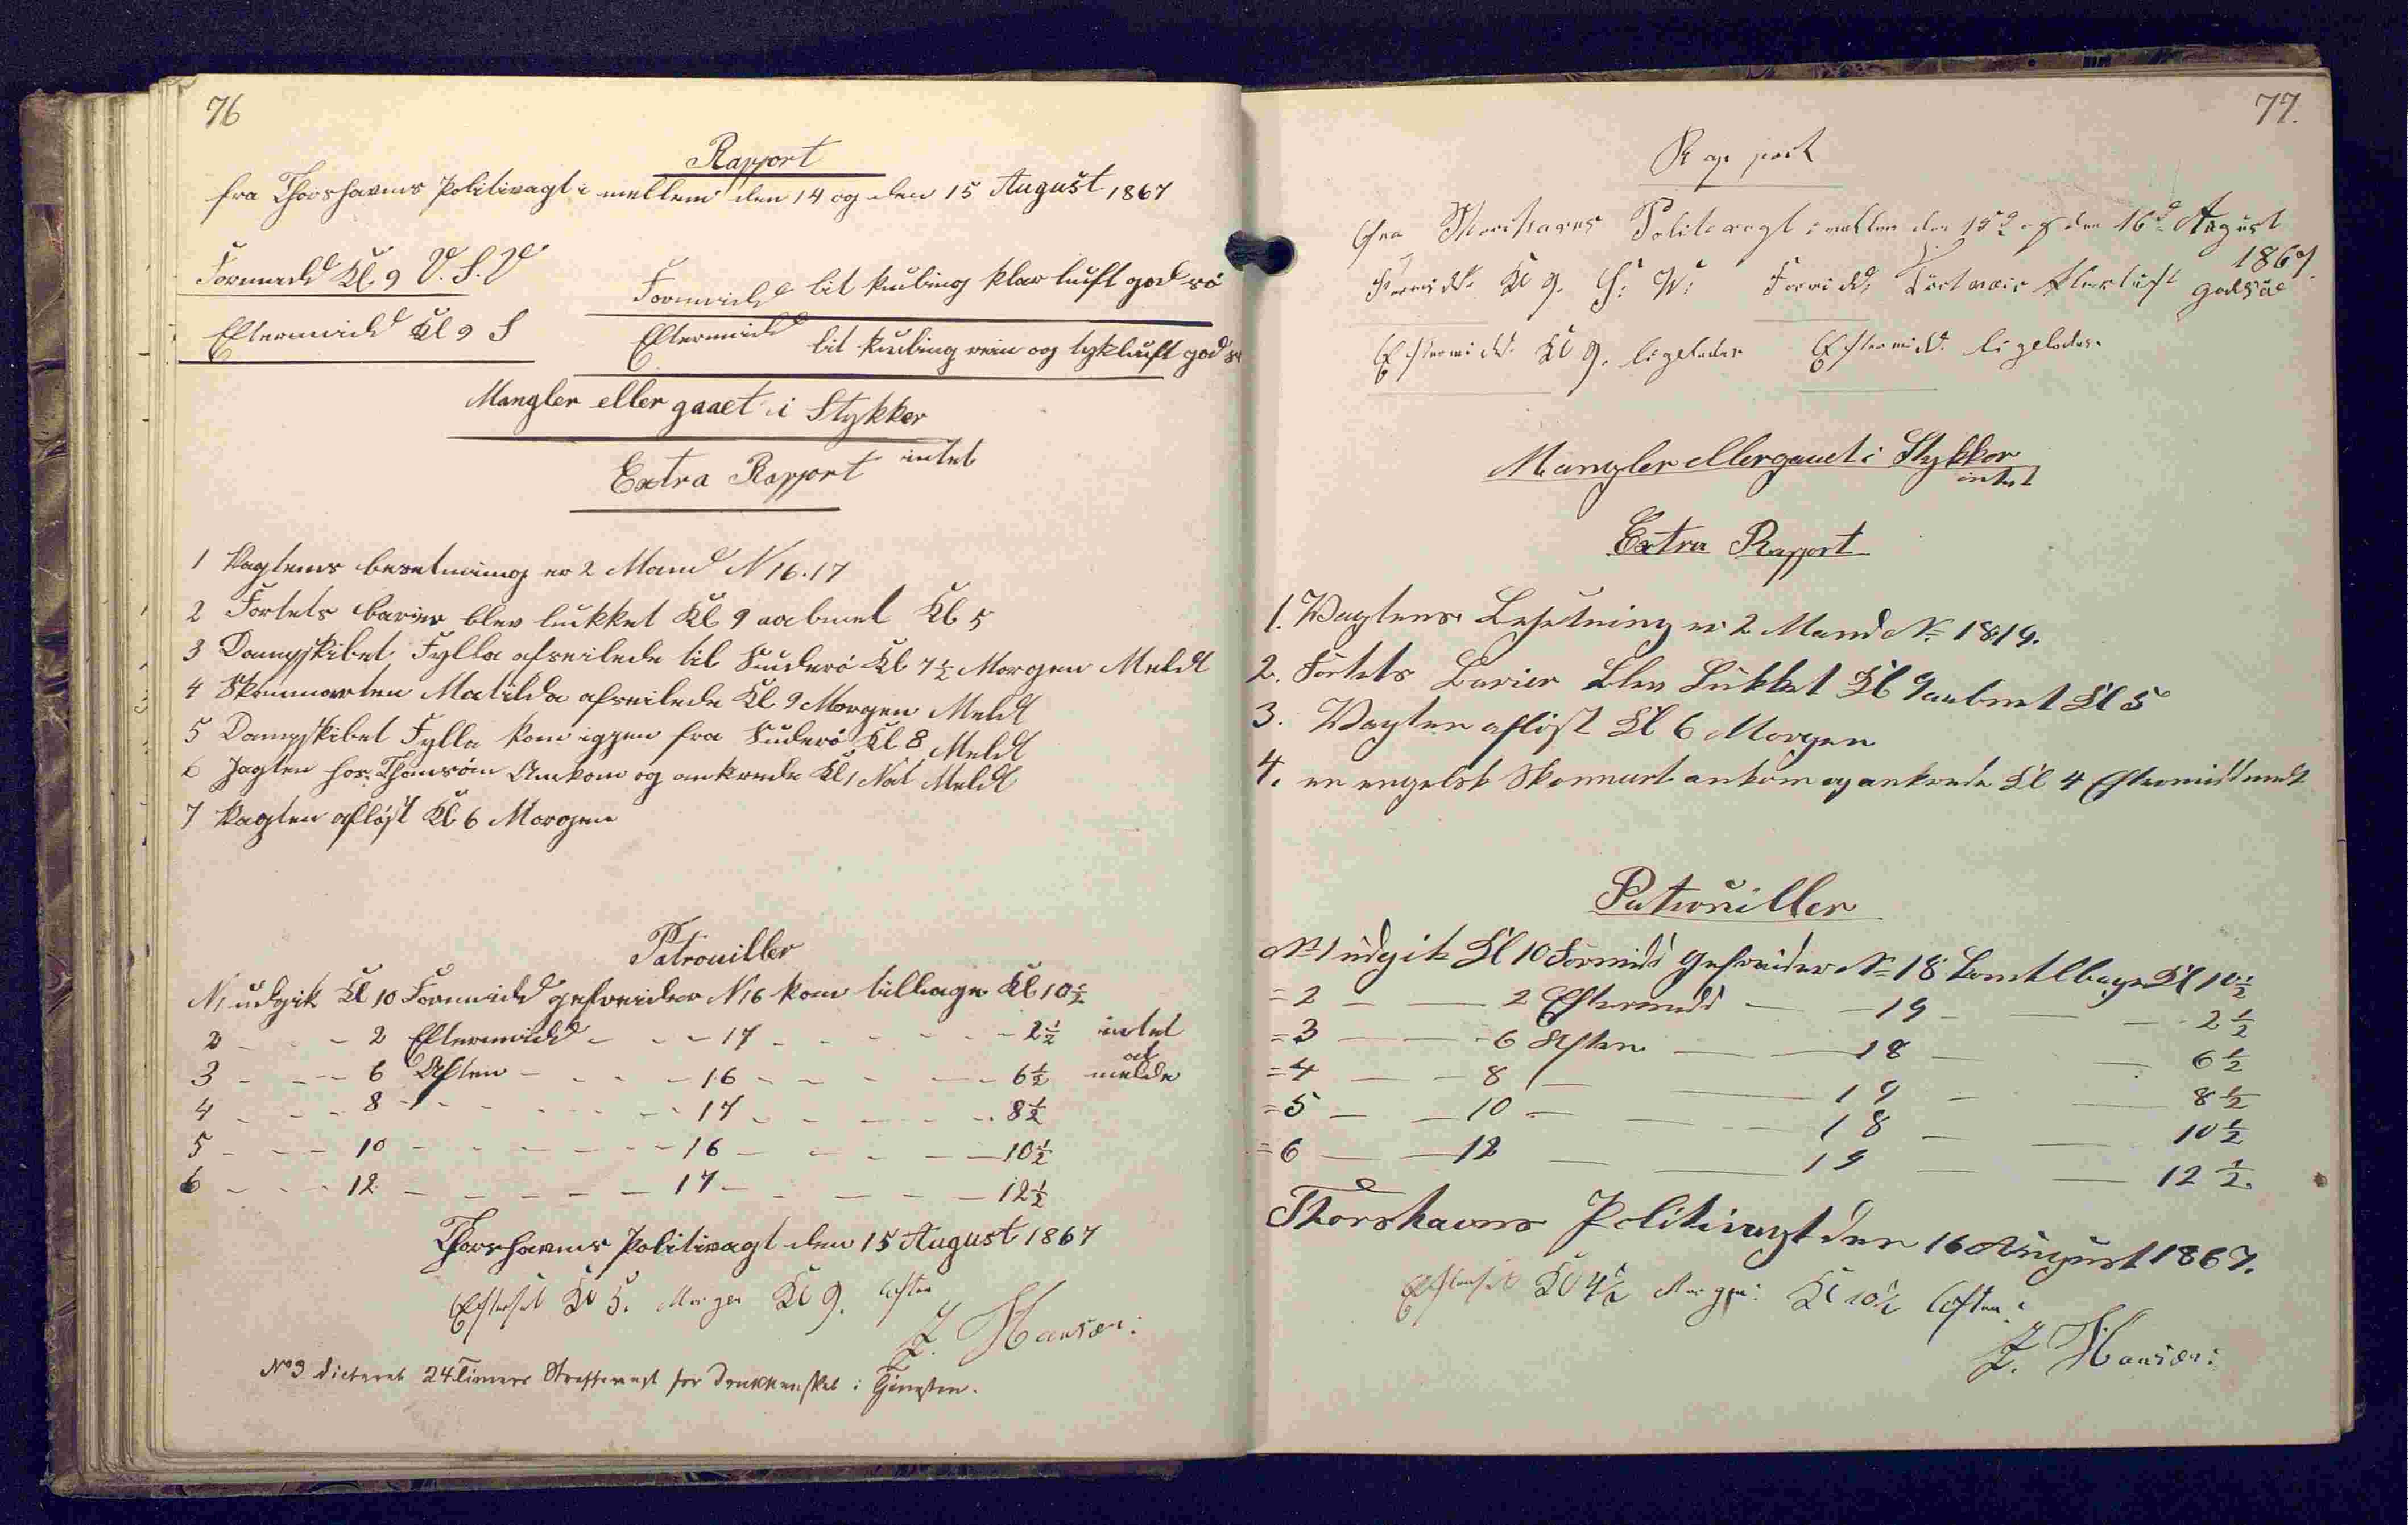 76
Rapport
fra Thorshavns Politivagt i mellem den 14 og den 15 August 1867
Formidd Kl. 9 V. S. V
Formidd lit kuling klar luft god sö
Eftermidd Kl 9 S
Eftermidd lit kuling rein og tyk luft god
Mangler eller gaaet i Stykker
intet
Extra Rapport
1 Vagtens besetning er 2 Mand N 16. 17
2 Fortets barier blev lukket Kl 9 aabnet Kl 5
3 Dampskibet Fylla afseilede til Suderö Kl 7½ Morgen Meldt
4 Skonnarten Matilda afseilede Kl 9 Morgen Meldt
5 Dampskibet Fylla kom iggen fra Suderö Kl 8 Meldt
6 Jagten hos. Thomsön Ankom og ankrede Kl 1 Nat Meldt
7 Vagten afløst Kl 6 Morgen
Patrouiller
N1 udgik Kl 10 Formidd gefreider N16 kom tilbage Kl 10½
2 - - - 2 Eftermidd - - - 17 - - - - - 2½ intet
3 - - - 6 Aften - - - - 16 - - - - - 6½ at melde
4 - - - 8 - - - - - - 17 - - - - - 8½
5 - - - 10 - - - - - - 16 - - - - - 10½
6 - - - 12 - - - - - - 17 - - - - - 12½
Thorshavns Politivagt den 15 August 1867
Efterset Kl 5. Morgen Kl 9. Aften
J. Hansen:
No 3 dicteret 24 Timers Straffevagt for Drukkenskab i Tjenesten.
77.
Rapport
fra Thorshavns Politivagt imellem den 15d og den 16d August
1867.
Formidd. Kl 9. S: V: Formidd. Tört veir klarluft godsöe
Eftermidd. Kl 9. ligeledes Eftermidd. ligeledes.
Mangler ellergaaet i Stykker
intet
Extra Rapport
1. Vagtens Besetning er 2 Mand No 18.19.
2. Fortets Barier Blev Lukket Kl 9 aabnet Kl 5
3. Vagten afløst Kl 6 Morgen
4. en engelsk Skonnart ankom og ankrede Kl 4 Eftermidd meldt
Patrouiller
No 1 udgik Kl 10 Formidd Gefreider No 18 kom tilbage Kl 10½
= 2 — — 2 Eftermidd — — 19 — — — 2½
= 3 — — 6 Aften — — 18 — — 6½
= 4 — — 8 — — 19 — — 8½
= 5 — — 10 — — 18 — — 10½
= 6 — — 12 — — 19 — — 12½.
Thorshavns Politivagt den 16 August 1867.
Efterset Kl 4½ Morgen: Kl 10½ Aften:
J. Hansen: